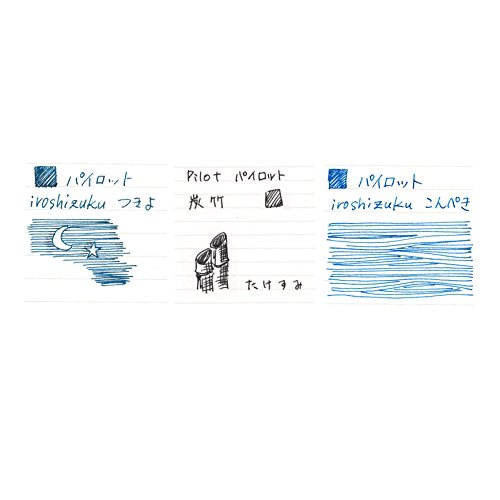 パイロット
iroshizuku つきよ
Pilot パイロット
炭竹
たけすみ
パイロット
iroshizuku こんぺき